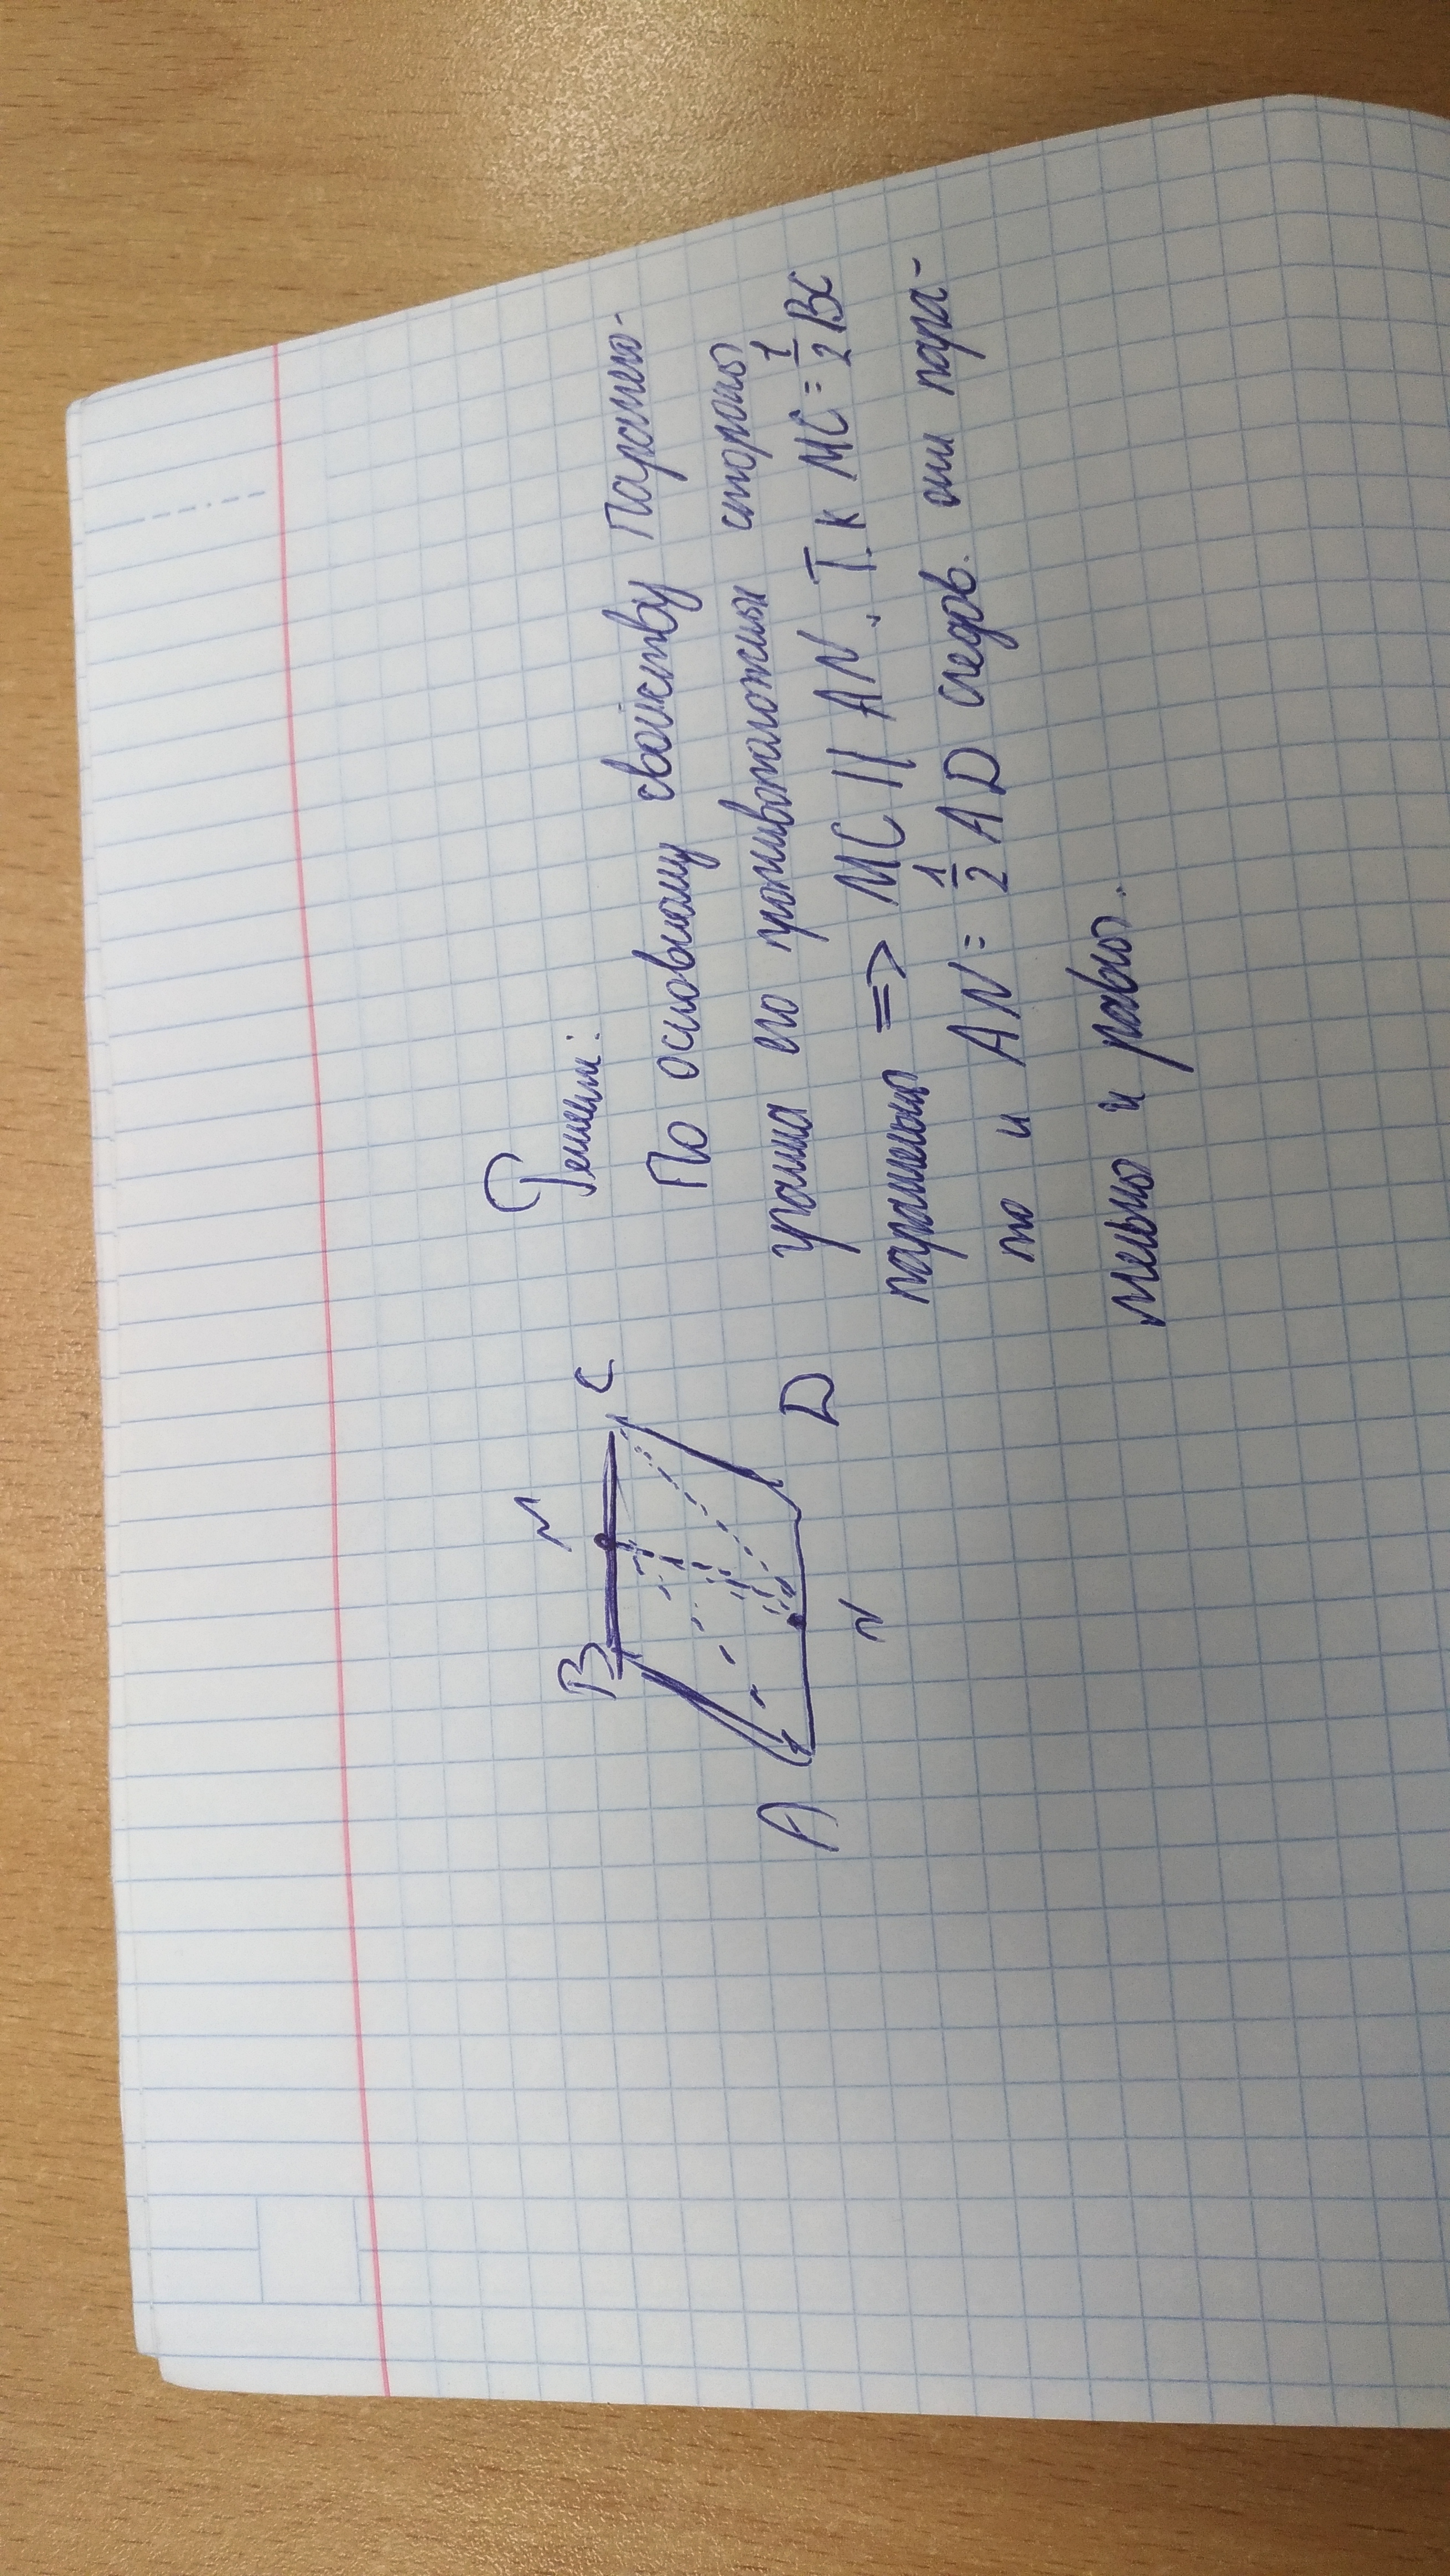 Решени:
По основному свойству Паралело-
грамма его противоположны стороны
паралельны => MC || AN. Т.к MC = 1/2 BC
то и AN = 1/2 AD следов. они пара-
лельны и равны.
B M C
A N D